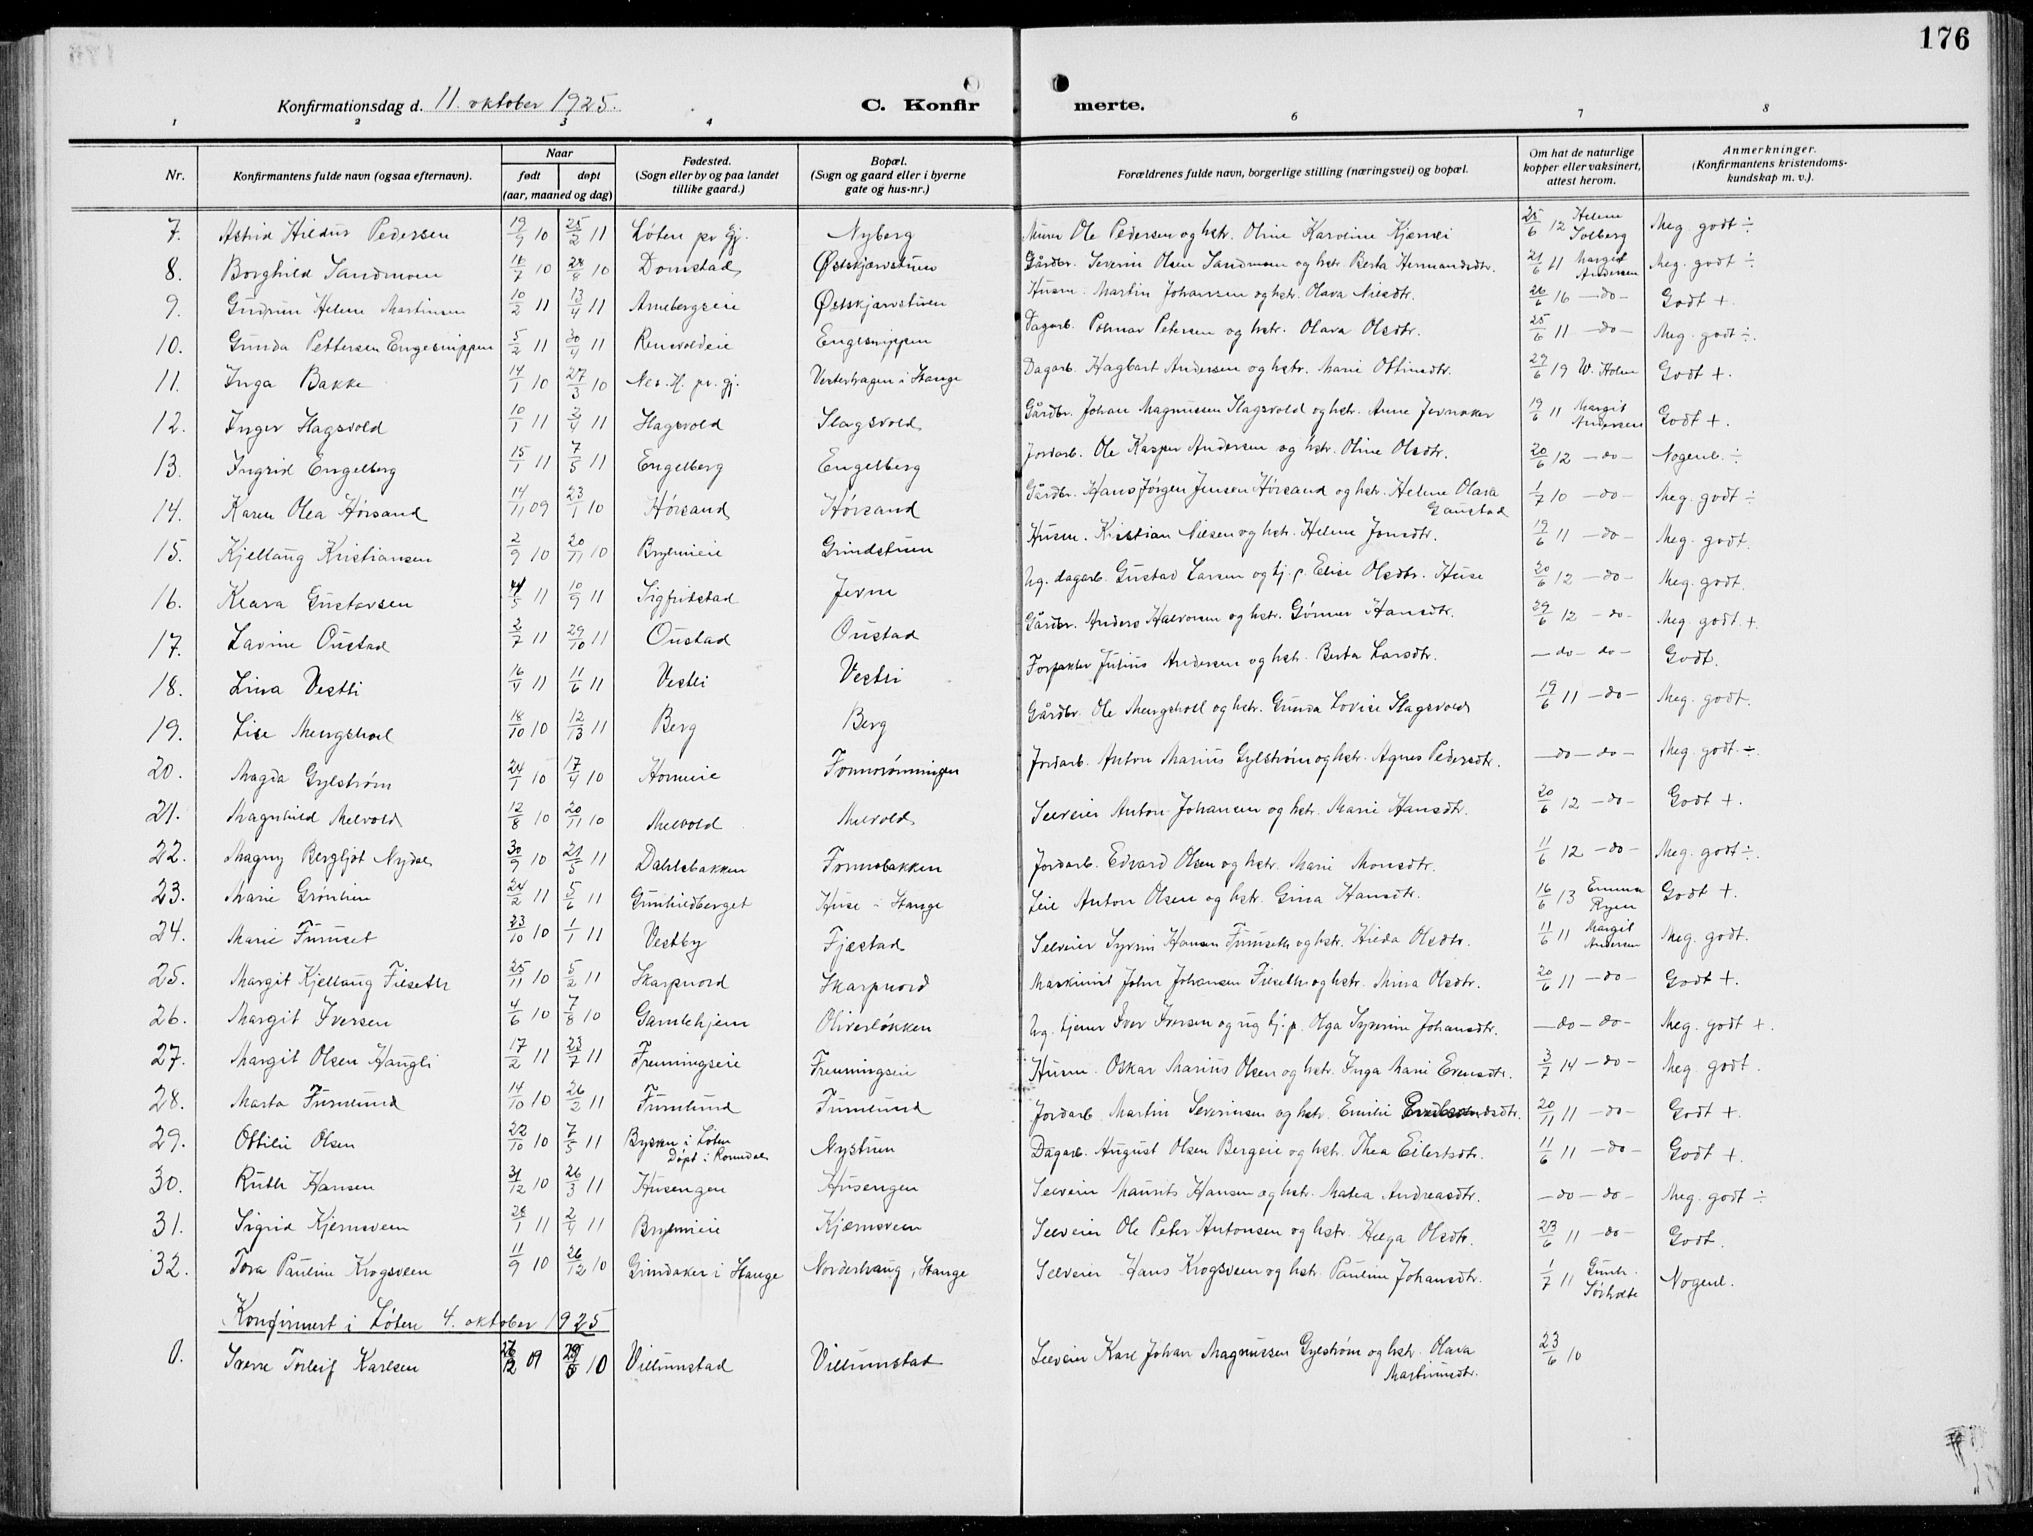 176
Konfirmationsdag d. 11. oktober 1925.
C. Konfir merte.
1 2 3 4 6 7 8
Nr. Konfirmantens fulde navn (ogsaa efternavn). Naar født døpt (aar, maaned og dag) Fødested. (Sogn eller by og paa landet tillike gaard.) Bopæl. (Sogn og gaard eller i byerne gate og hus-nr.) Forældrenes fulde navn, borgerlige stilling (næringsvei) og bopæl. Om hat de naturlige kopper eller vaksinert, attest herom. Anmerkninger. (Konfirmantens kristendoms-kundskap m. v.).
7. Astrid Hildur Pedersen 19/9 10 25/2 11 Løten pr gj. Nyberg Murer Ole Pedersen og hstr. Oline Karoline Kjærnli 25/6 12 Helene Solberg Meg. godt ÷
8. Borghild Sandmoen 16/7 10 24/9 10 Domstad Østskjærstuen Gårdbr. Severin Olsen Sandmoen og hstr. Berta Hermandsdtr. 21/6 11 Margit Andersen Meg. godt ÷
9. Gudrun Helene Martinsen 10/2 11 13/4 11 Arnebergseie Østskjærstuen Husm. Martin Johansen og hstr. Olava Nilsdtr. 26/6 16 - do - Godt +
10. Gunda Pettersen Engesnippen 5/2 11 30/4 11 Rensvoldeie Engesnippen Dagarb. Petersen og hstr. Olava Olsdtr. 25/6 11 - do - Meg. godt ÷
11. Inga Bakke 14/1 10 27/3 10 Nes. H. pr. gj. Vesterhagen i Stange Dagarb. Hagbart Andersen og hstr. Marie Ottinsdtr. 29/6 19 W. Holm Godt +.
12. Inger Slagsvold 10/1 11 2/4 11 Slagsvold Slagsvold Gårdbr. Johan Magnussen Slagsvold og hstr. Anne Jernaker 19/6 11 Margit Andersen Godt +.
13. Ingrid Engelberg 15/1 11 7/5 11 Engelberg Engelberg Jordarb. Ole Kasper Andersen og hstr. Oline Olsdtr. 20/6 12 - do - Nogenl. ÷
14. Karen Olea Hørsand 14/11 09 23/1 10 Hørsand Hørsand Gårdbr. Hans Jørgen Jensen Hørsand og hstr. Helene Olava Gaustad 1/7 10 - do - Meg. godt ÷
15. Kjellaug Kristiansen 2/9 10 20/11 10 Brylieie Grindstuen Husm. Kristian Nilsen og hstr. Helene Jonsdtr. 19/6 11 - do - Meg. godt.
16. Klara Gustavsen 4/5 11 10/9 11 Sigfridstad Jerne Ug. dagarb. Gustav Larsen og tj. p. Elise Olsdtr. Huse 20/6 12 - do - Meg. godt.
17. Lavine Oustad 2/7 11 29/10 11 Oustad Oustad Gårdbr. Anders Halvorsen og hstr. Gørner Hansdtr. 29/6 12 - do - Meg. godt. +
18. Lina Vestli 16/4 11 11/6 11 Vestli Vestli Forpakter Julius Andersen og hstr. Berta Larsdtr. - do - do - Godt.
19. Lise Mengshoel 18/10 10 12/13 11 Berg Berg Gårdbr. Ole Mengshoel og hstr. Gunda Lovise Slagsvold 19/6 11 - do - Meg. godt.
20. Magda Gylstrøm 24/1 10 17/4 10 Horneie Fonnrønningen Jordarb. Anton Marius Gylstrøm og hstr. Agnes Pedersdtr. - do - do - Meg. godt. ÷
21. Magnhild Melvold 12/8 10 20/11 10 Melvold Melvold Selveier Anton Johansen og hstr. Marie Hansdtr. 20/6 12 - do - Godt +.
22. Magny Bergljot Nydal 30/9 10 21/5 11 Dahlsbakken Fonnsbakken Jordarb. Edvard Olsen og hstr. Marie Monsdtr. 11/6 12 - do - Meg. godt ÷.
23. Marie Grønlien 24/2 11 5/6 11 Gunhildberget Huse i Stange Leil Anton Olsen og hstr. Gina Hansdtr. 16/6 13 Emma Ryen Godt +
24. Marie Furuset 23/10 10 1/1 11 Vestby Fjæstad Selveier Syver Hansen Furuseth og hstr. Hilda Olsdtr. 11/6 11 Margit Andersen Meg. godt.
25. Margit Kjellaug Filseth 25/11 10 5/2 11 Skarpnord Skarpnord Maskinist John Johansen Filseth og hstr. Mina Olsdtr. 20/6 11 - do - Godt +
26. Margit Iversen 4/6 10 7/8 10 Gamlehjem Oliverløkken Ug. tjener Iver Iversen og ug. tj. p. Olga Syverine Johansdtr. - do - do - Meg. godt +.
27. Margit Olsen Haugli 17/2 11 23/7 11 Frenningseie Frenningseie Husm. Oskar Marius Olsen og hstr. Inga Marie Evensdtr. 3/7 14 - do - Meg. godt.
28. Marta Furulund 14/10 10 26/2 11 Furulund Furulund Jordarb. Martin Severinsen og hstr. Emilie 20/11 11 - do - Godt +
29. Ottilie Olsen 22/10 10 7/5 11 Bysken i Løten Døpt i Romedal Nystuen Dagarb. August Olsen Bergeie og hstr. Thea Eilertsdtr. 11/6 11 - do - Godt +.
30. Ruth Hansen 31/12 10 26/3 11 Husengen Husengen Selveier Maurits Hansen og hstr. Matea Andreasdtr. - do - do - Meg. godt ÷
31. Sigrid Kjernsveen 28/1 11 2/4 11 Brylieie Kjernsveen Selveier Ole Peter Antonsen og hstr. Helga Olsdtr. 23/6 11 - do - Godt.
32. Tora Pauline Krogsveen 11/9 10 26/12 10 Grindaker i Stange Nordenhaug, Stange Selveier Hans Krogsveen og hstr. Pauline Johansdtr. 1/7 11 Gunh. Sørholte Nogenl.
Konfirmert i Løten 4. oktober 1925
0. Sverre Torleif Karlsen 26/12 09 10 Villumstad Villumstad Selveier Karl Johan Magnussen Gylstrøm og hstr. Olava Martinusdtr. 23/6 10